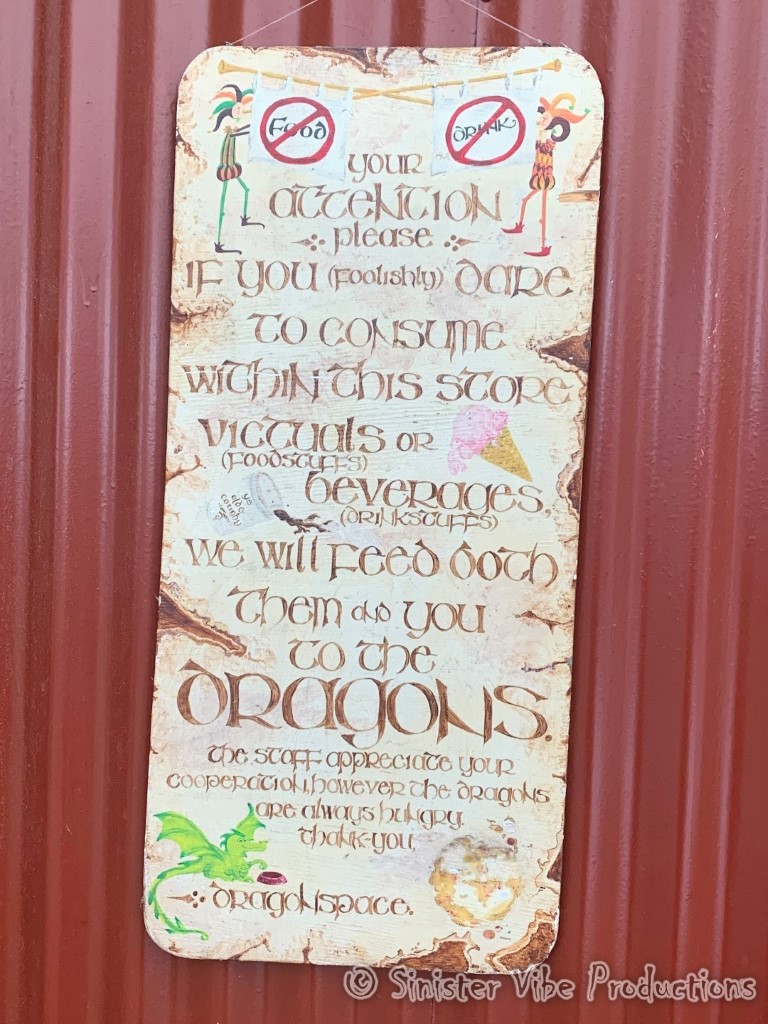 Food
DRINK
YOUR
ATTENTION
please
IF YOU (foolishly) DARE
TO CONSUME
WITHIN THIS STORE
VICTUALS OR
(FOODSTUFFS)
BEVERAGES,
(DRINKSTUFFS)
ye
olde
country
WE WILL FEED BOTH
THEM and YOU
TO THE
DRAGONS.
THE STAFF APPRECIATE YOUR
COOPERATION, HOWEVER THE DRAGONS
ARE ALWAYS HUNGRY.
THANK-YOU,
DRAGONSPACE.
© Sinister Vibe Productions